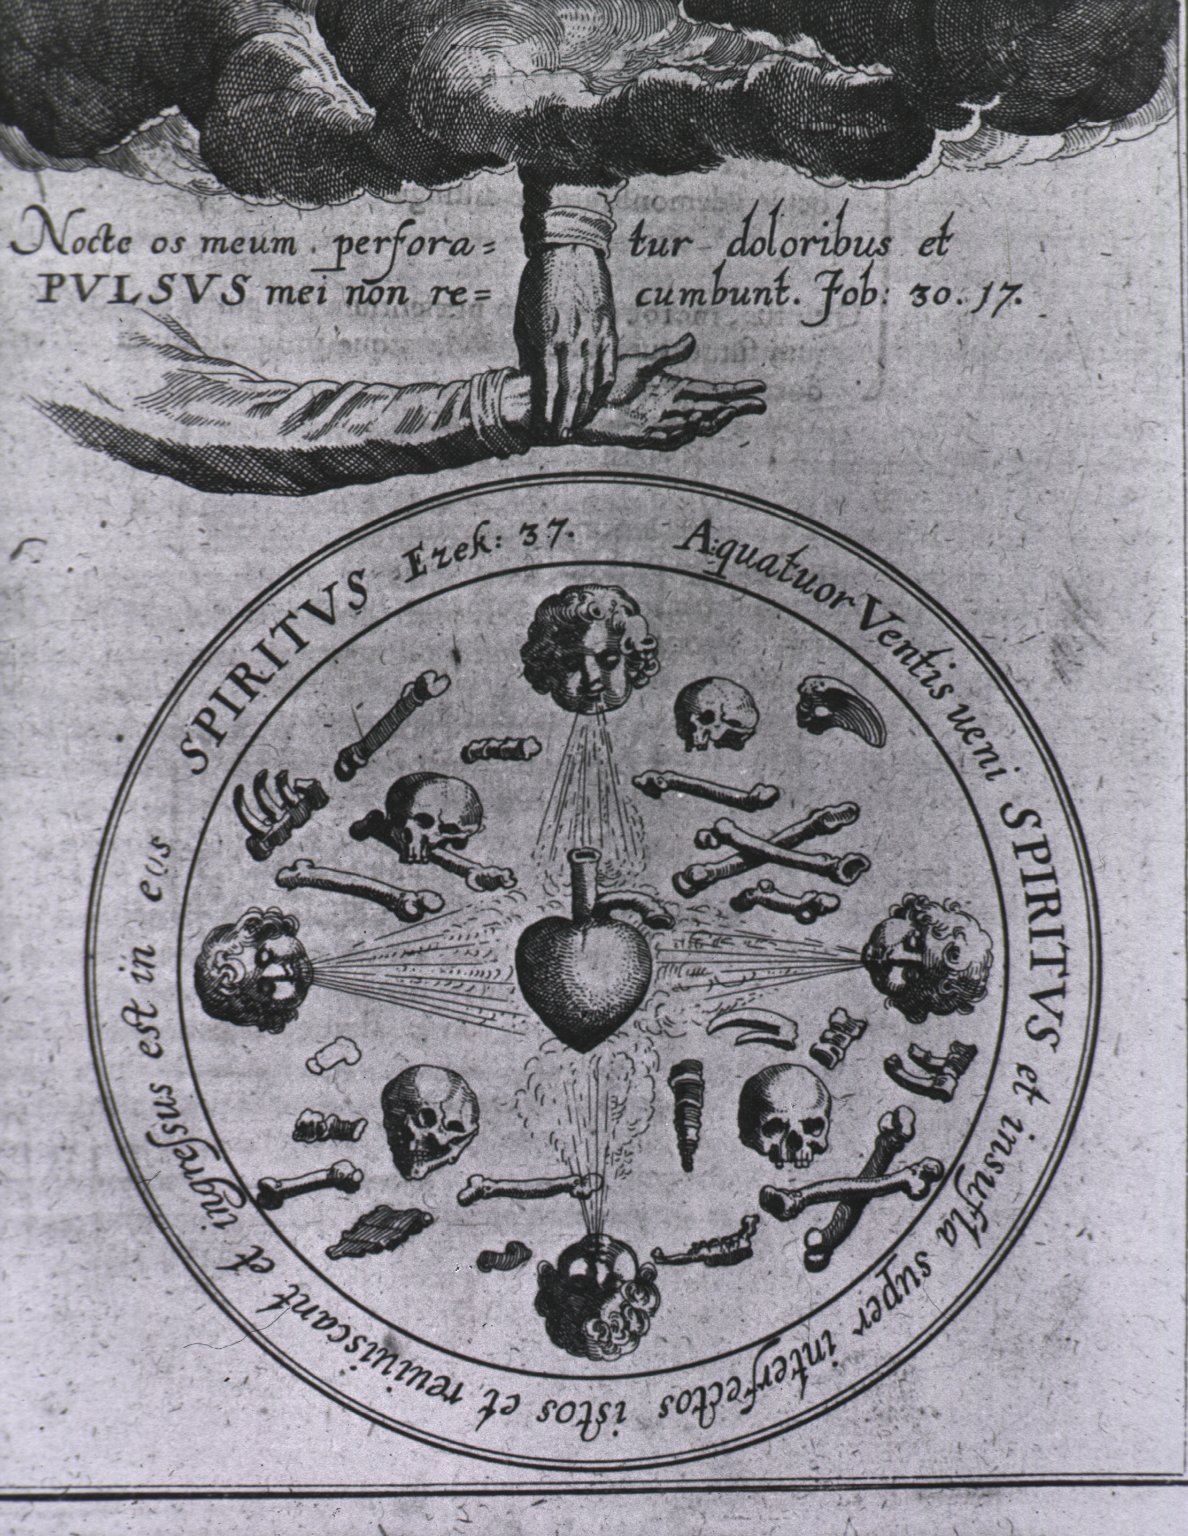 Nocte os meum perfora= tur doloribus et
PVLSVS mei non re= cumbunt. Job: 30. 17.
A quatuor Ventis veni SPIRITVS et insufla super interfectos istos et reuiuiscant et ingressus est in eus SPIRITVS Ezek: 37.